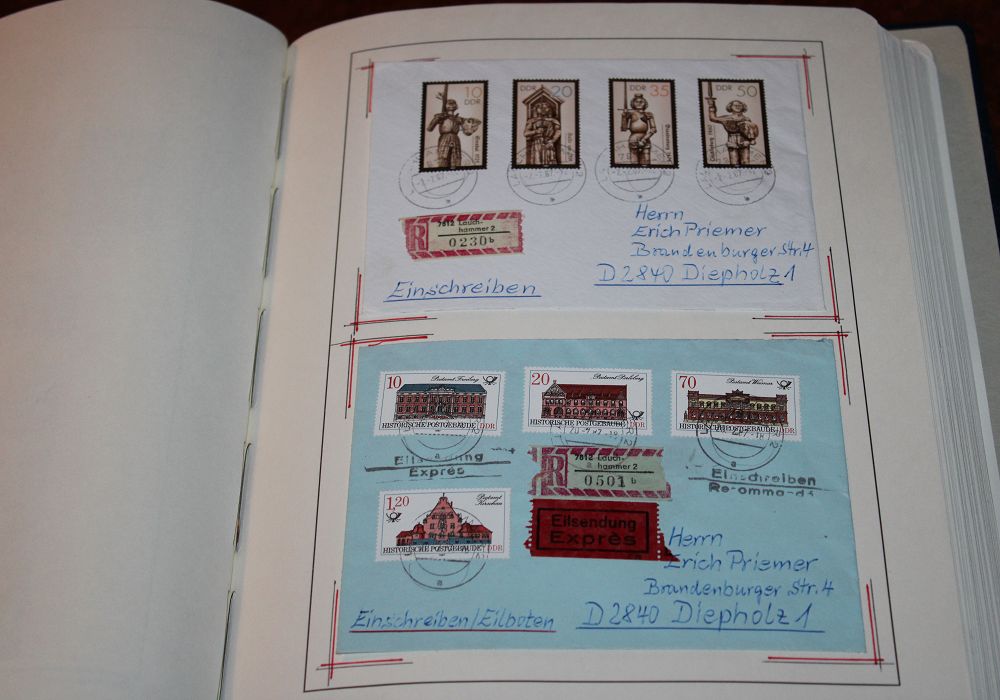 10
DDR
DDR 20
DDR 35
DDR 50
7812 Lauch-
hammer 2
R
0230 b
Herrn
Erich Priemer
Brandenburger Str. 4
D 2840 Diepholz 1
Einschreiben
10 Postamt Freiberg
HISTORISCHE POSTGEBÄUDE DDR
20 Postamt Perleberg
HISTORISCHE POSTGEBÄUDE DDR
70 Postamt Weimar
HISTORISCHE POSTGEBÄUDE DDR
Eilsendung
Exprès
7812 Lauch-
hammer 2
R
0501 b
Einschreiben
1,20 Postamt Kirschau
HISTORISCHE POSTGEBÄUDE DDR
Eilsendung
Exprès
Herrn
Erich Priemer
Brandenburger Str. 4
D 2840 Diepholz 1
Einschreiben/Eilboten